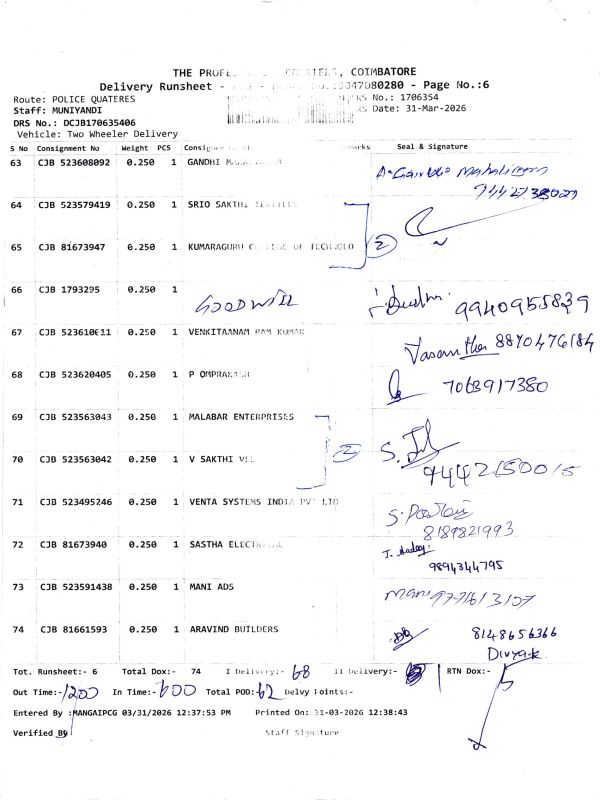 THE PROFESSIONAL COURIERS, COIMBATORE
Delivery Runsheet - 0047080280 - Page No.:6
Route: POLICE QUATERES
DRS No.: 1706354
Staff: MUNIYANDI
DRS Date: 31-Mar-2026
DRS No.: DCJB170635406
Vehicle: Two Wheeler Delivery
S No Consignment No Weight PCS Consignee Remarks Seal & Signature
63 CJB 523608092 0.250 1 GANDHI
9442738029
64 CJB 523579419 0.250 1 SRIO SAKTHI TEXTILES
2
65 CJB 81673947 0.250 1 KUMARAGURU COLLEGE OF TECHNOLO
66 CJB 1793295 0.250 1 GOODWILL 9940955839
67 CJB 523610611 0.250 1 VENKITAANAM RAM KUMAR
Vasantha 8870476184
68 CJB 523620405 0.250 1 P OMPRAKASH
7063917380
69 CJB 523563043 0.250 1 MALABAR ENTERPRISES
2
70 CJB 523563042 0.250 1 V SAKTHI VEL
9442150015
71 CJB 523495246 0.250 1 VENTA SYSTEMS INDIA PVT LTD
8189821993
72 CJB 81673940 0.250 1 SASTHA
9894344795
73 CJB 523591438 0.250 1 MANI ADS
Mani
74 CJB 81661593 0.250 1 ARAVIND BUILDERS
8148656366
Divya.k
Tot. Runsheet:- 6 Total Dox:- 74 I Delivery:- 68 II Delivery:- RTN Dox:-
Out Time:- 1200 In Time:- 600 Total POD:- 62 Delvy Points:-
Entered By :MANGAIPCG 03/31/2026 12:37:53 PM Printed On: 31-03-2026 12:38:43
Verified By
Staff Signature